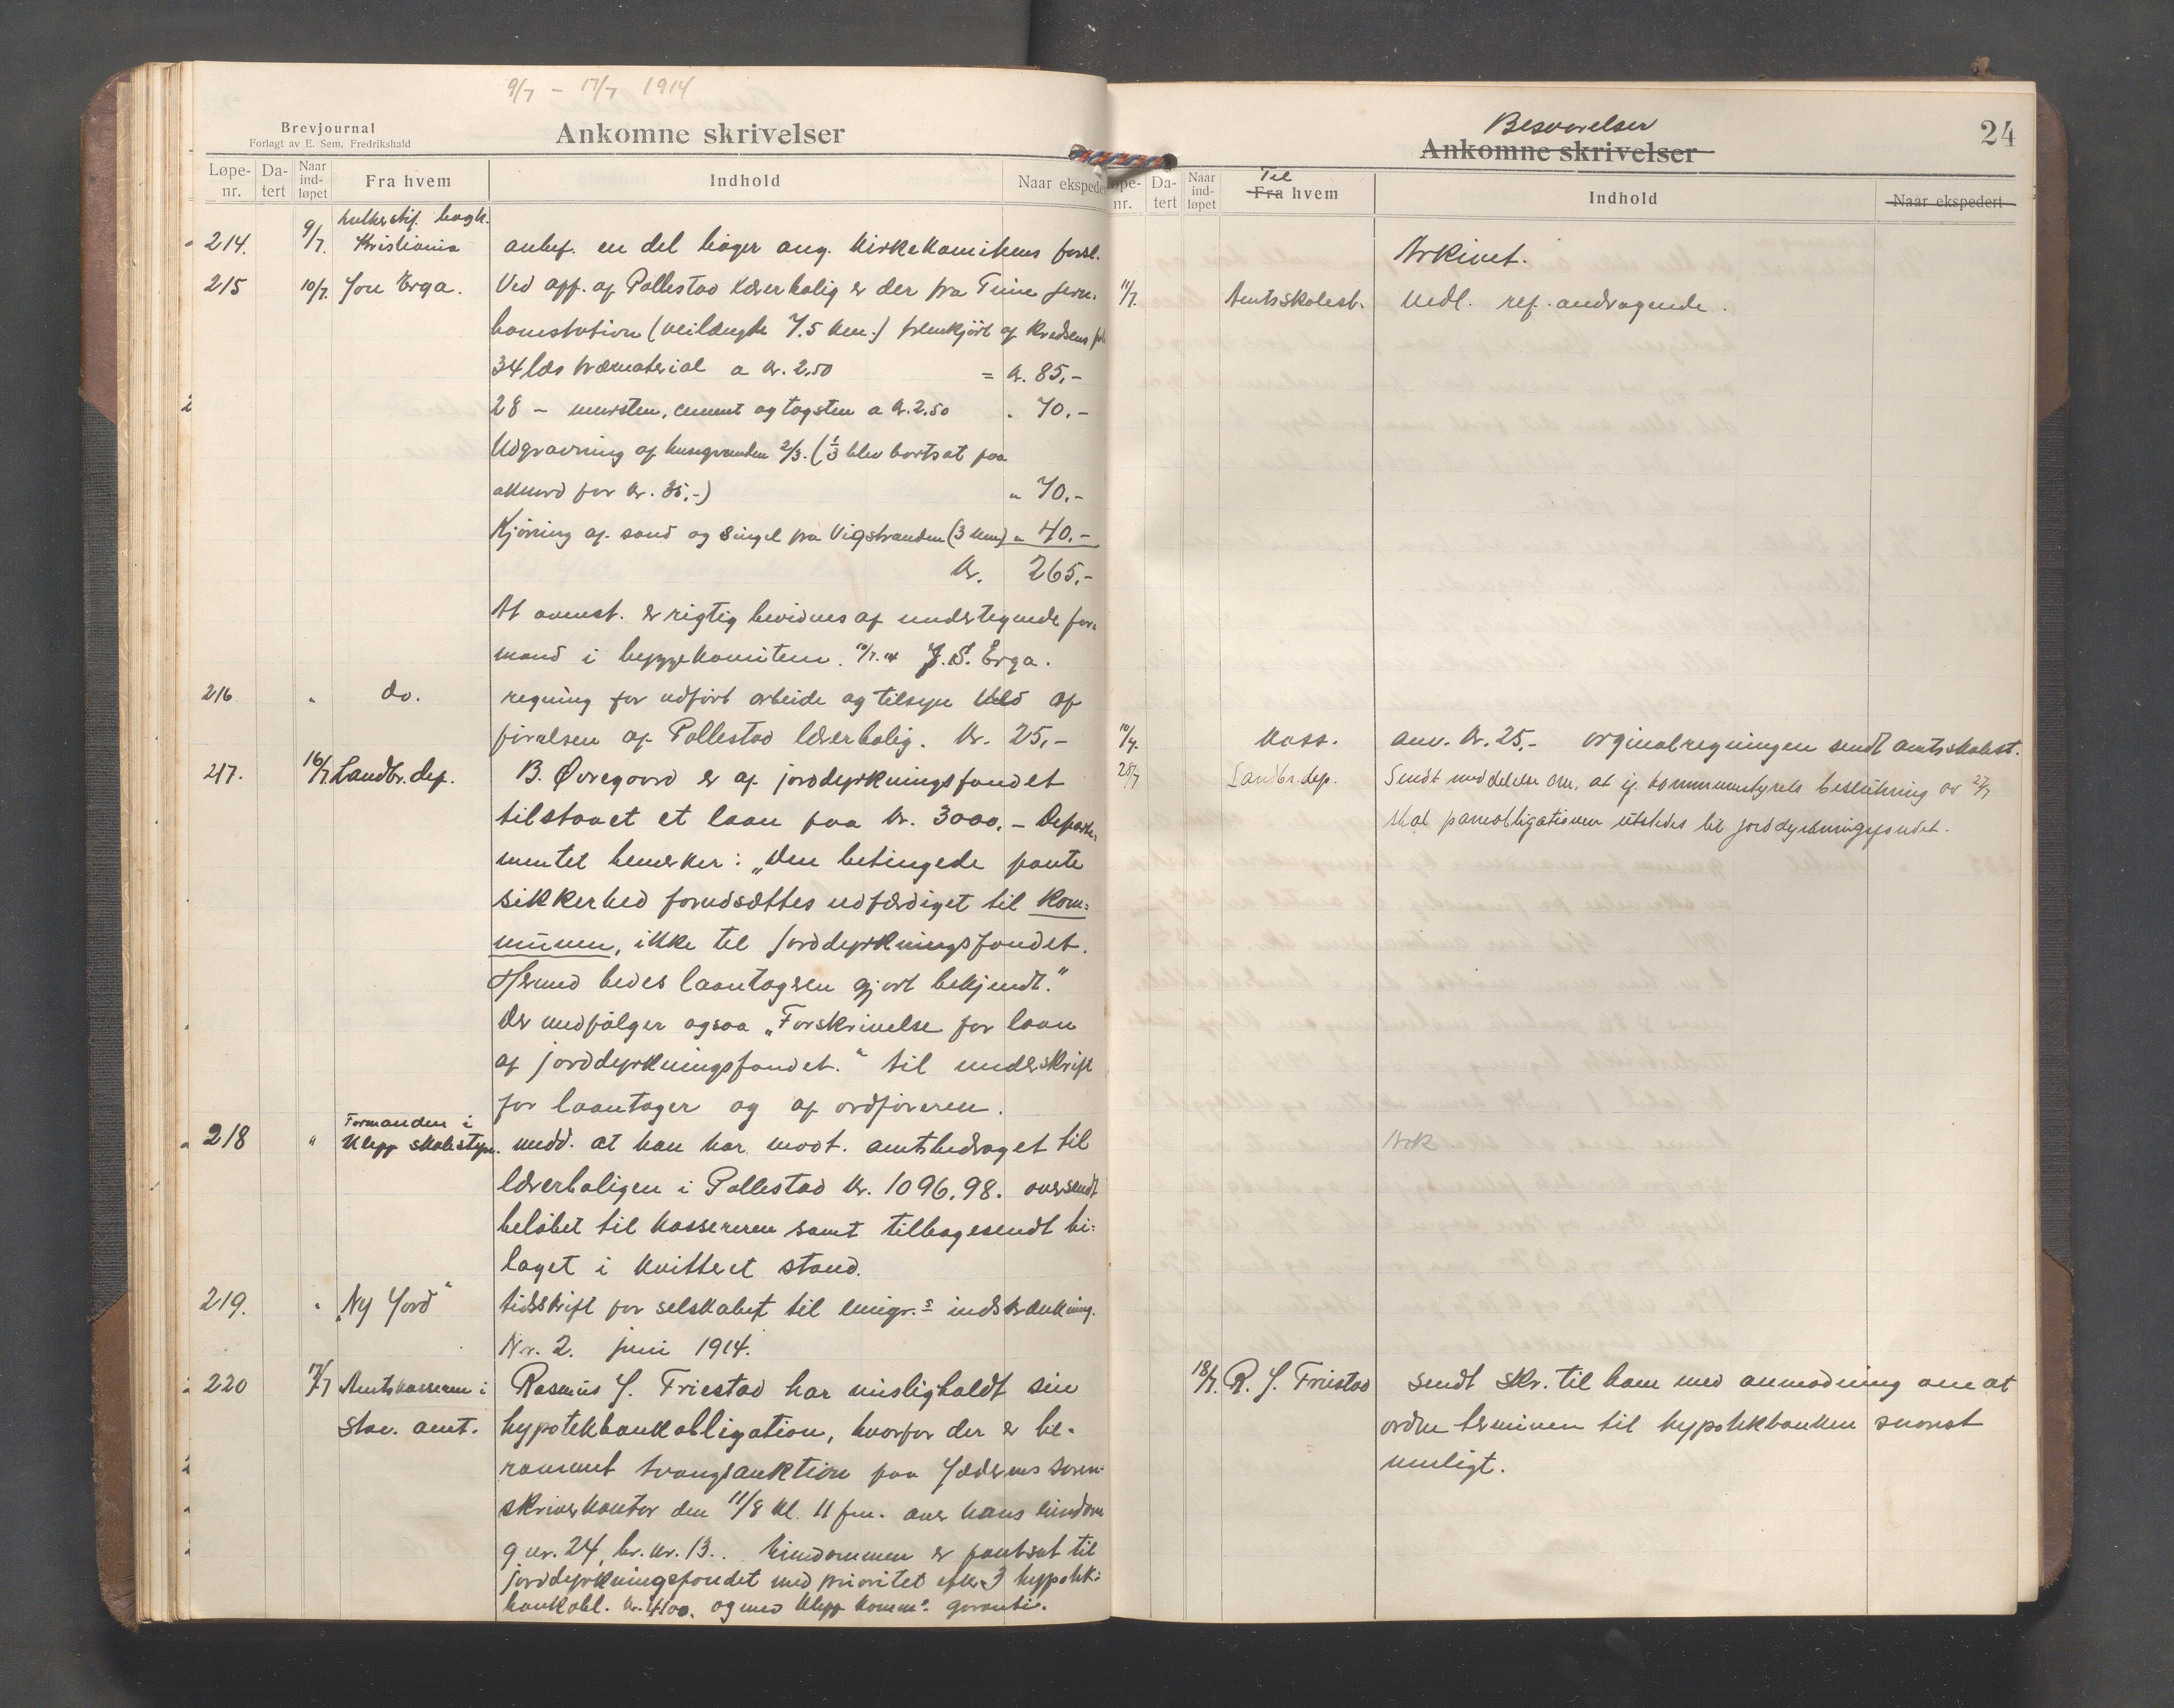 9/7 - 17/7 1914
Brevjournal
Forlagt av E. Sem, Fredrikshald
Ankomne skrivelser
Løpe-nr. Da-tert Naar ind-løpet Fra hvem Indhold Naar ekspedert
214. 9/7. Kristiania anbef. en del bøger ang. Kirkekomiteens forsl.
215 10/7. Jon Erga. Ved opf. af Pollestad lærerbolig er der fra Time jern-
banestation (veilængde 7.5 km.) fremkjørt af Kredsens
34 læs træmaterial a kr. 2.50 = kr. 85,-
28 - mursten, cement og tagsten a kr. 2.50 " 70.-
Udgravning af husgrunden 2/3. (1/3 blev bortsat paa
akkord for kr. 35,-) " 70.-
Kjøring af sand og singel fra Vigstranden (3 km) " 40.-
kr. 265.-
At ovenst. er rigtig bevidnes af undertegnede for-
mand i byggekomiteen. 10/7.14 J. S. Erga.
216 " do. regning for udført arbeide og tilsyn ved op
førelsen af Pollestad lærerbolig. kr. 25,-
217. 16/7 Landbr. dep. B. Øvregaard er af jorddyrkningsfondet
tilstaaet et laan paa kr. 3000.- Departe-
mentet bemerker: „Den betingede pante
sikkerhed forudsættes udfærdiget til kom-
munen, ikke til jorddyrkningsfondet.
Hermed bedes laantageren gjort bekjendt."
Der medfølger ogsaa „Forskrivelse for laan
af jorddyrkningsfondet." til underskrift
for laantager og af ordføreren.
218 " Formanden i Klepp skolestyre. medd. at han har modt. amtsbidraget til
lærerboligen i Pollestad kr. 1096.98. oversendt
beløbet til kassereren samt tilbagesendt bi-
laget i kvitteret stand.
219. " „Ny Jord" tidsskrift for selskabet til emigr.s indskrænkning.
Nr. 2. juni 1914.
220 17/7 Amtskasseren i Rasmus J. Friestad har misligholdt sin
Stav. amt. hypotekbankobligation, hvorfor der er be-
rammet tvangsauktion paa Jæderens soren-
skriverkontor den 11/8 kl. 11 fm. over hans eiendom
g nr. 24, br. nr. 13.. Eiendommen er pantsat til
jorddyrkningsfondet med prioritet efter 3 hypotek-
bankobl. kr. 4100. og med Klepp komm.s garanti.
Besvarelser
Ankomne skrivelser 24
Løpe-nr. Da-tert Naar ind-løpet Til Fra hvem Indhold Naar ekspedert
Arkivet.
11/7. Amtsskolest. Vedl. ref. andragende.
10/7. Kass. anv. kr. 25,- orginalregningen sendt amtsskolest.
28/7 Landbr. dep. Sendt meddelelse om, at ig. kommunestyrets beslutning av 27/7
skal panteobligationen utstedes til jorddyrkningsfondet.
Ark
18/7. R. J. Friestad Sendt skr. til ham med anmodning om at
ordne terminen til hypotekbanken snarest
muligt.